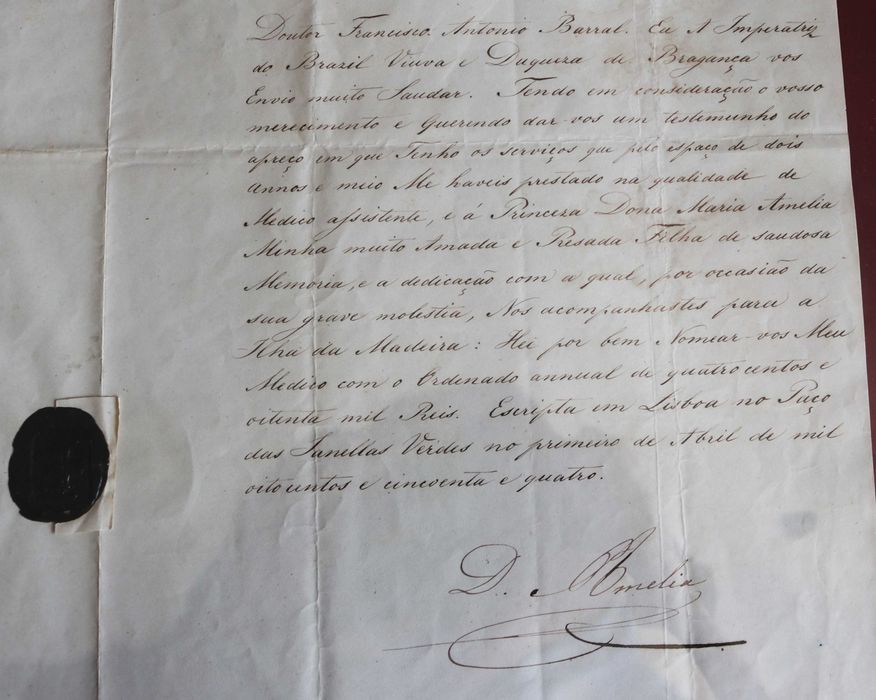 Doutor Francisco Antonio Barral. Eu A Imperatriz
do Brazil Viuva e Duqueza de Bragança vos
Envio muito Saudar. Tendo em consideração o vosso
merecimento e Querendo dar-vos um testemunho do
apreço em que Tenho os serviços que pelo espaço de dois
annos e meio Me haveis prestado na qualidade de
Medico assistente, e á Princeza Dona Maria Amelia
Minha muito Amada e Presada Filha de saudosa
Memoria, e a dedicação com a qual, por occasião da
sua grave molestia, Nos acompanhastes para a
Ilha da Madeira: Hei por bem Nomear-vos Meu
Medico com o Ordenado annual de quatrocentos e
oitenta mil Reis. Escripta em Lisboa no Paço
das Janellas Verdes no primeiro de Abril de mil
oitocentos e cincoenta e quatro.
D. Amelia